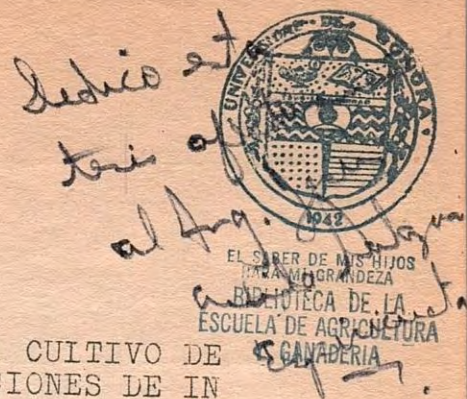 Dedico esta
tesis
al Ing.
UNIVERSIDAD DE SONORA
1942
EL SABER DE MIS HIJOS
HARA MI GRANDEZA
BIBLIOTECA DE LA
ESCUELA DE AGRICULTURA
Y GANADERIA
CUITIVO DE
IONES DE IN